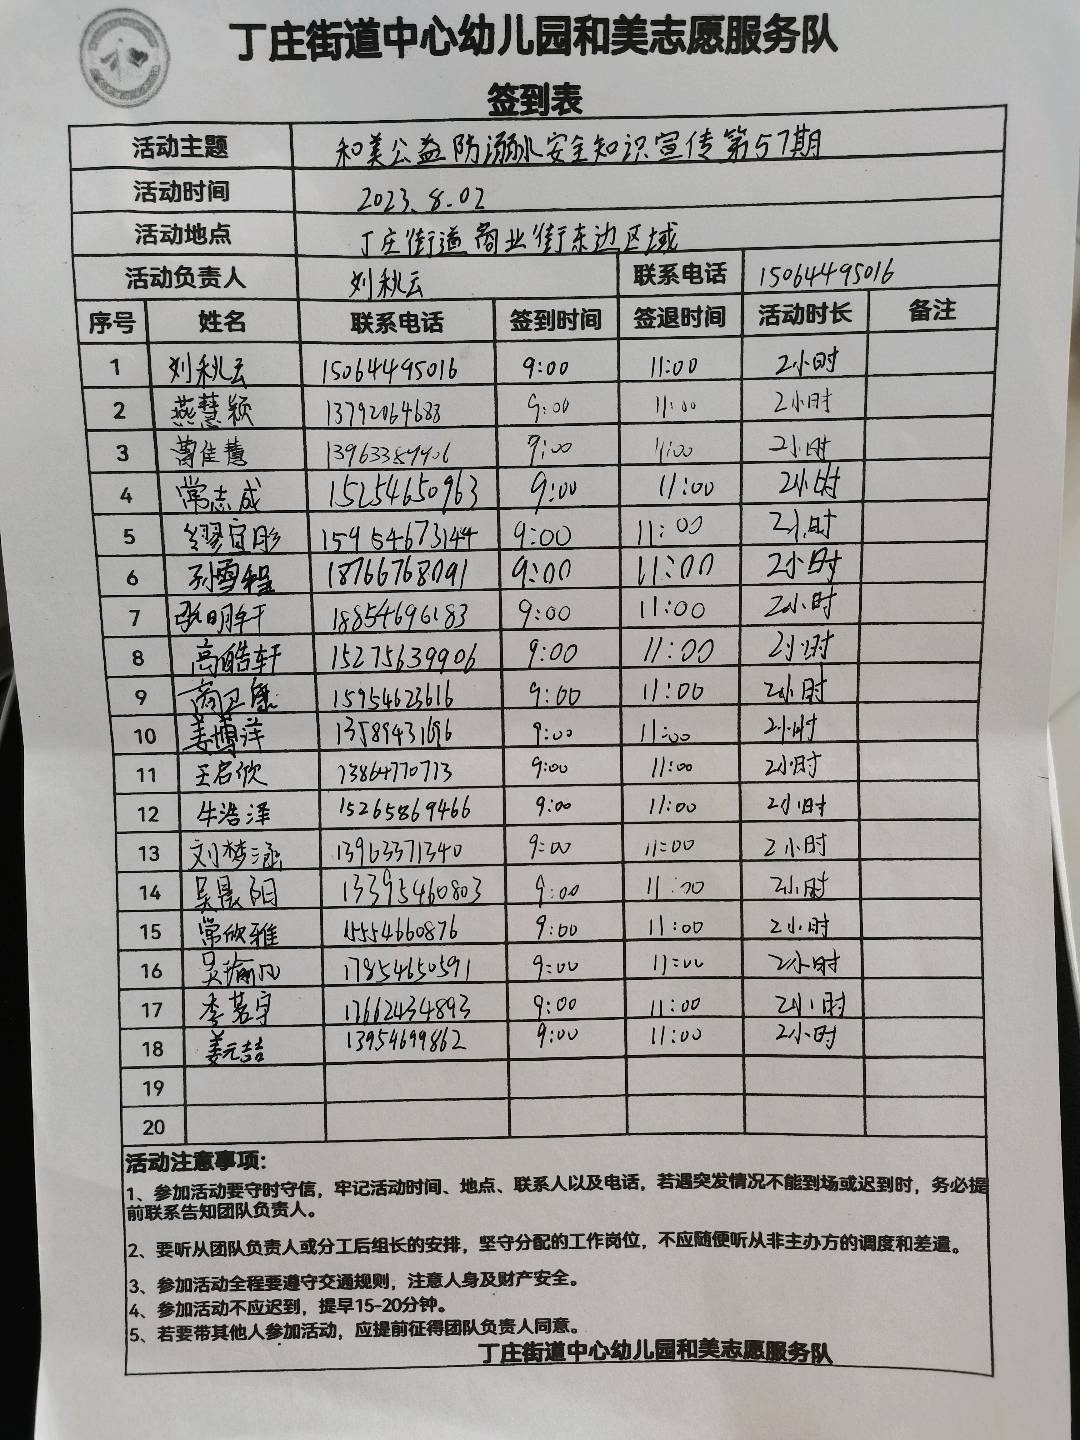 丁庄街道中心幼儿园和美志愿服务队
签到表
活动主题 和美公益防溺水安全知识宣传第57期
活动时间 2023.8.02
活动地点 丁庄街道商业街东边区域
活动负责人 刘秋云 联系电话 15064495016
序号 姓名 联系电话 签到时间 签退时间 活动时长 备注
1 刘秋云 15064495016 9:00 11:00 2小时
2 燕慧颖 13792064683 9:00 11:00 2小时
3 蔺佳慧 9:00 11:00 2小时
4 常志成 15254650963 9:00 11:00 2小时
5 缪宜彤 15954673144 9:00 11:00 2小时
6 孙雪程 18766768091 9:00 11:00 2小时
7 张明轩 18854696183 9:00 11:00 2小时
8 高皓轩 15275639906 9:00 11:00 2小时
9 商卫康 15954623616 9:00 11:00 2小时
10 姜博洋 13589431696 9:00 11:00 2小时
11 王启欣 13864770713 9:00 11:00 2小时
12 牛浩泽 15265869466 9:00 11:00 2小时
13 刘梦涵 13963371340 9:00 11:00 2小时
14 吴晨阳 13395460803 9:00 11:00 2小时
15 常欣雅 15554660876 9:00 11:00 2小时
16 吴瑜凡 17854650591 9:00 11:00 2小时
17 李若宇 17662434893 9:00 11:00 2小时
18 姜元喆 13954699862 9:00 11:00 2小时
19
20
活动注意事项：
1、参加活动要守时守信，牢记活动时间、地点、联系人以及电话，若遇突发情况不能到场或迟到时，务必提
前联系告知团队负责人。
2、要听从团队负责人或分工后组长的安排，坚守分配的工作岗位，不应随便听从非主办方的调度和差遣。
3、参加活动全程要遵守交通规则，注意人身及财产安全。
4、参加活动不应迟到，提早15-20分钟。
5、若要带其他人参加活动，应提前征得团队负责人同意。
丁庄街道中心幼儿园和美志愿服务队